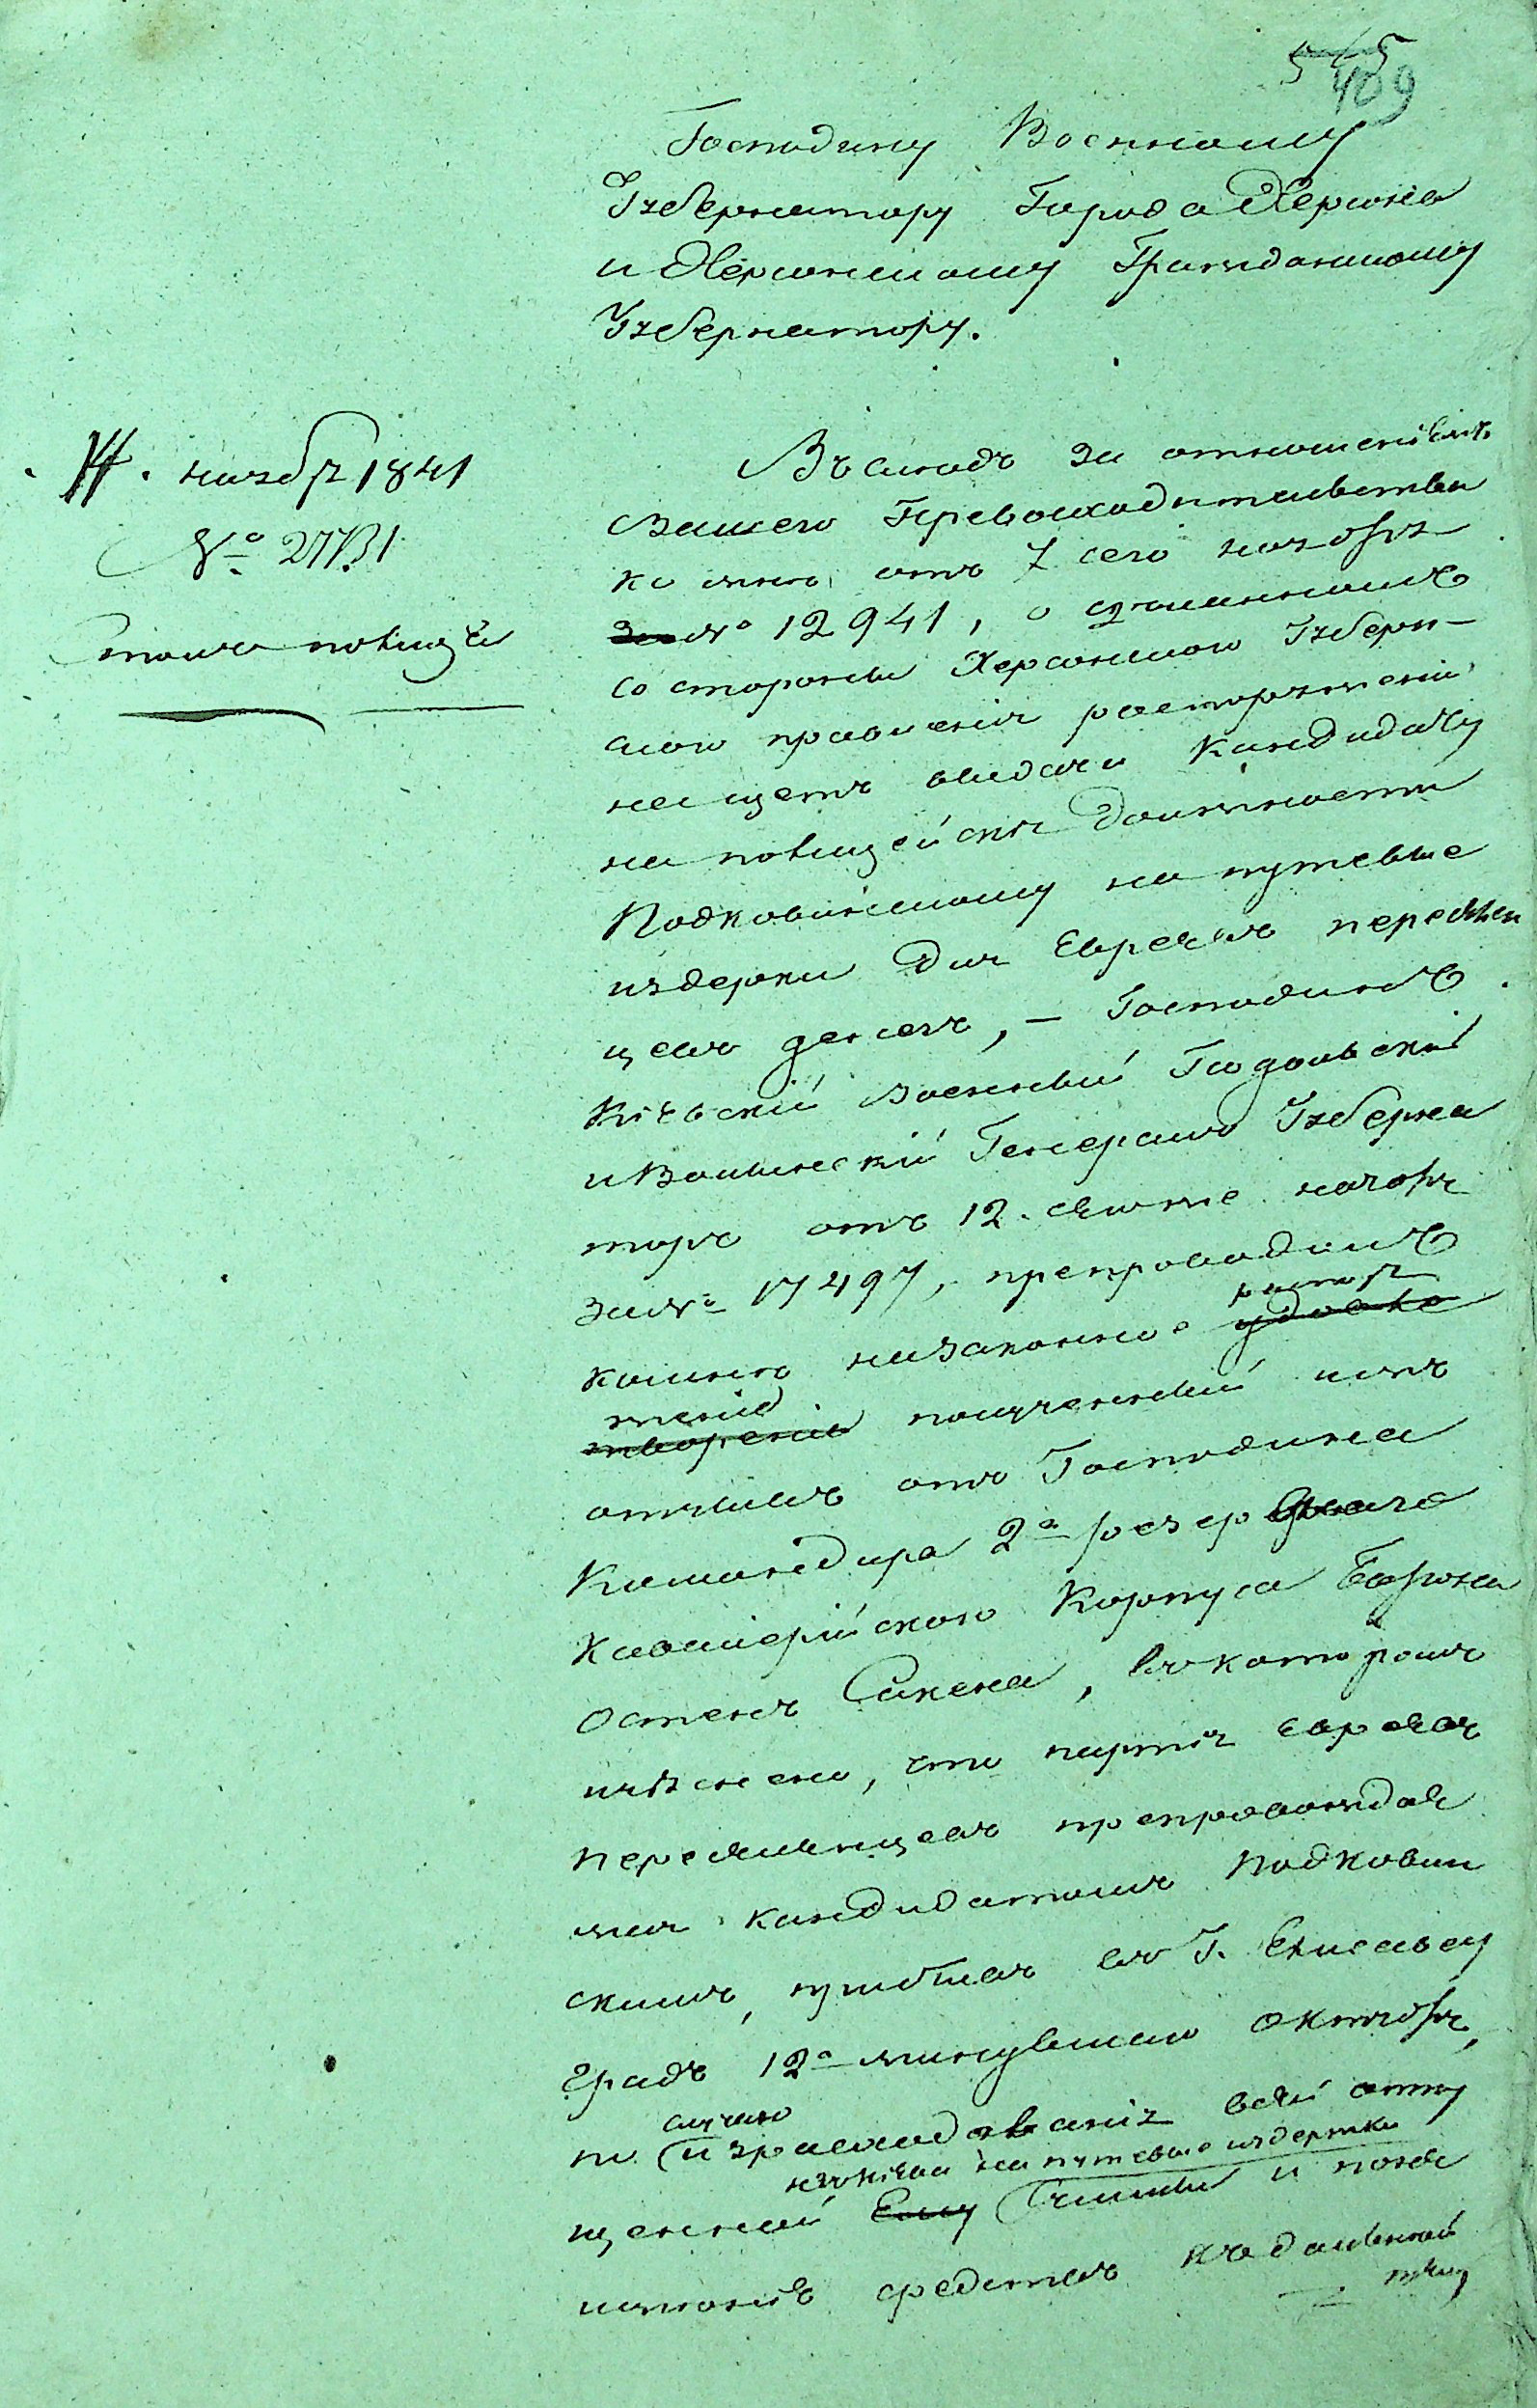 545
409
Господину Военному
Губернатору Города Херсона
и Херсонскому Гражданскому
Губернатору.
14. ноября 1841
№ 27131
Столъ полиціи
Въ слѣдъ за отношеніемъ
Вашего Превосходительства
ко мнѣ отъ 7 сего ноября
за № 12941, о сдѣланномъ
со стороны Херсонскаго Губерн-
скаго правленія распоряженіи
на щетъ выдачи Кандидату
на полицейскія должности
Подковинскому на путевые
издержки для Евреевъ переселен
цевъ денегъ, – Господинъ
Кіевскій Военный Подольскій
и Волынскій Генералъ Губерна
торъ отъ 12. сего же ноября
за № 17497, препроводилъ
ко мнѣ на законное распоря
женіе полученный имъ
отзывъ отъ Господина
Командира 2го резервнаго
Кавалерійскаго Корпуса Барона
Остенъ Сакена, въ которомъ
изъяснено, что партія Евреевъ
переселенцевъ препровождае
мая кандидатомъ Подковин
скимъ, прибывъ въ Г. Елисавет
градъ 12го минувшаго Октября,
по случаю израсходованія всей отпу
на путевые издержки
щенной суммы и не
имѣнія средствъ къ дальнѣй